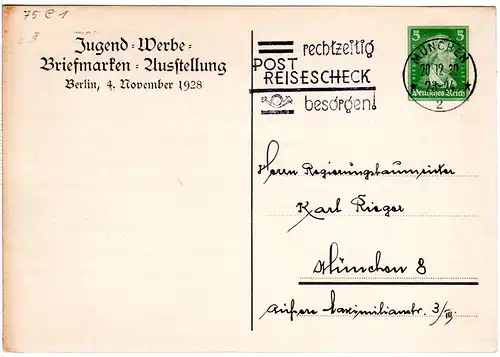 75 C 1
Jugend-Werbe-
Briefmarken-Ausstellung
Berlin, 4. November 1928
rechtzeitig
POST
REISESCHECK
besorgen!
5 5
Deutsches Reich
MÜNCHEN
2
Herrn Regierungsbaumeister
Karl Rieger
München 8
Äußere Maximilianstr. 3/III.